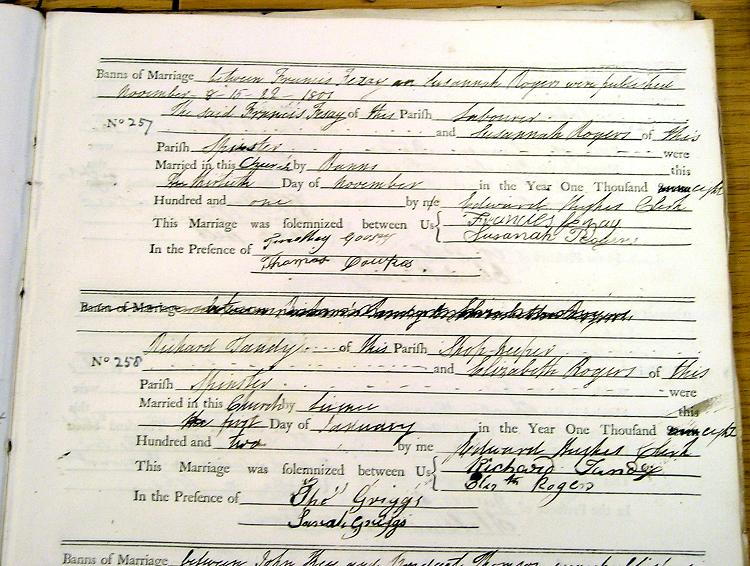 Banns of Marriage between Francis Fezay an Susannah Rogers were published
November 8 - 15 - 22 - 1801
The said Francis Fezay of this Parish Labourer
No 257 and Susannah Rogers of this
Parish Spinster were
Married in this Church by Banns this
Day of November in the Year One Thousand eight
Hundred and one by me Edward Hughes Clerk
This Marriage was solemnized between Us Francies
In the Presence of Susanah Rogers
Thomas
Banns of Marriage between
Richard Tandy of this Parish Shop-keeper
No 258 and Elizabeth Rogers of this
Parish Spinster were
Married in this Church by Licence this
the first Day of January in the Year One Thousand eight
Hundred and two by me Edward Hughes Clerk
This Marriage was solemnized between Us Richard Tandy
Elizth Rogers
In the Presence of Thos Griggs
Sarah Griggs
Banns of Marriage between John and